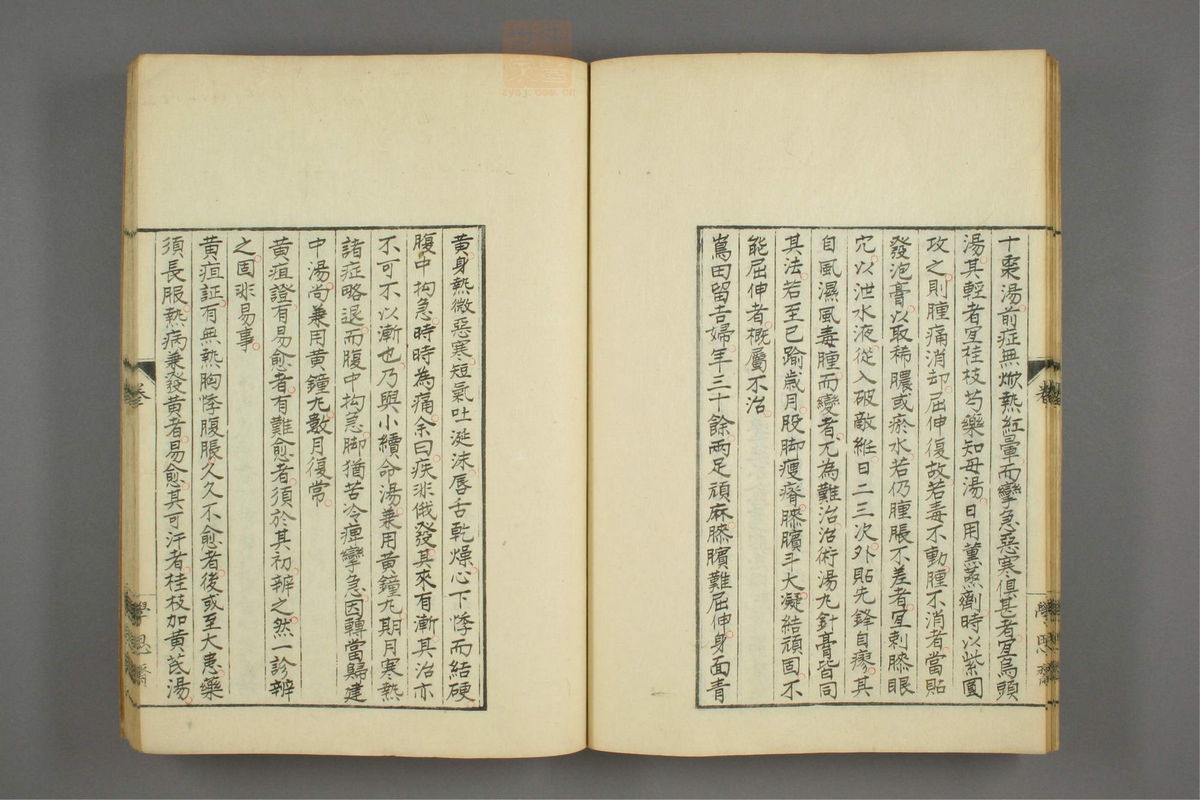 十棗湯前症無焮熱紅暈而攣急惡寒俱甚者宜烏頭
湯其輕者宜桂枝芍藥知母湯日用薫蒸劑時以紫圓
攻之則腫痛消却屈伸復故若毒不動腫不消者當貼
發泡膏以取稀膿或瘀水若仍腫脹不差者宜刺膝眼
穴以泄水液從入破敵絍日二三次外貼先鋒自瘳其
自風濕風毒腫而變者尤為難治治術湯丸針膏皆同
其法若至已踰歲月股脚瘦瘠膝臏斗大凝結頑固不
能屈伸者概屬不治
嶌田留吉婦年三十餘兩足頑麻膝臏難屈伸身面青
黄身熱微惡寒短氣吐涎沫唇舌乾燥心下悸而結硬
腹中拘急時時為痛余曰疾非俄發其來有漸其治亦
不可不以漸也乃與小續命湯兼用黄鐘丸期月寒熱
諸症略退而腹中拘急脚猶苦冷痺攣急因轉當歸建
中湯尚兼用黄鐘丸數月復常
黄疸證有易愈者有難愈者須於其初辨之然一診辨
之固非易事
黄疸証有無熱胸悸腹脹久久不愈者後或至大患藥
須長服熱病兼發黄者易愈其可汗者桂枝加黄芪湯
卷
學思齋
zysj.com.cn